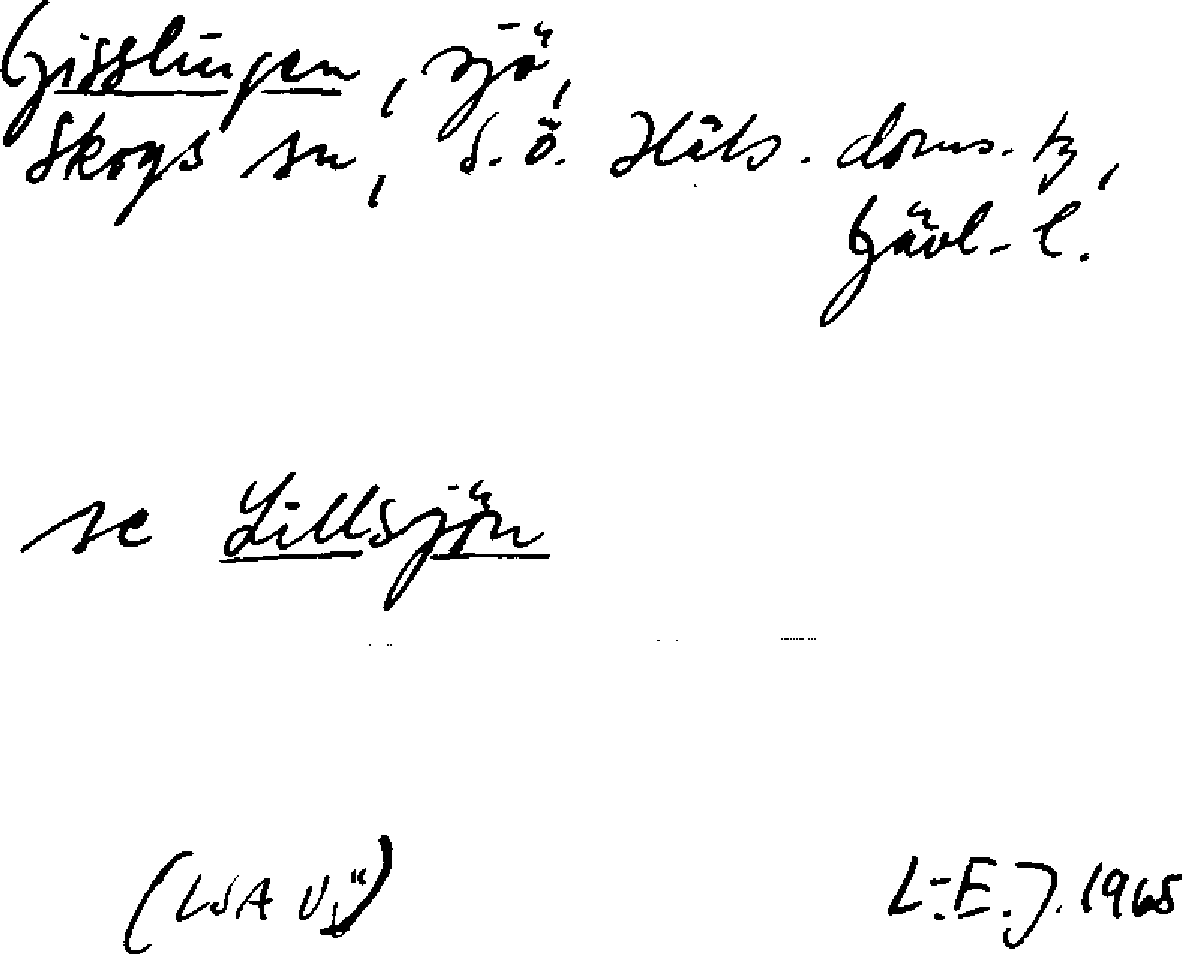 Gisslingen, sjö,
Skogs sn, S.Ö. Häls. doms. tg,
Gävl. l.
se Lillsjön
(LSA
L-E.J. 1965